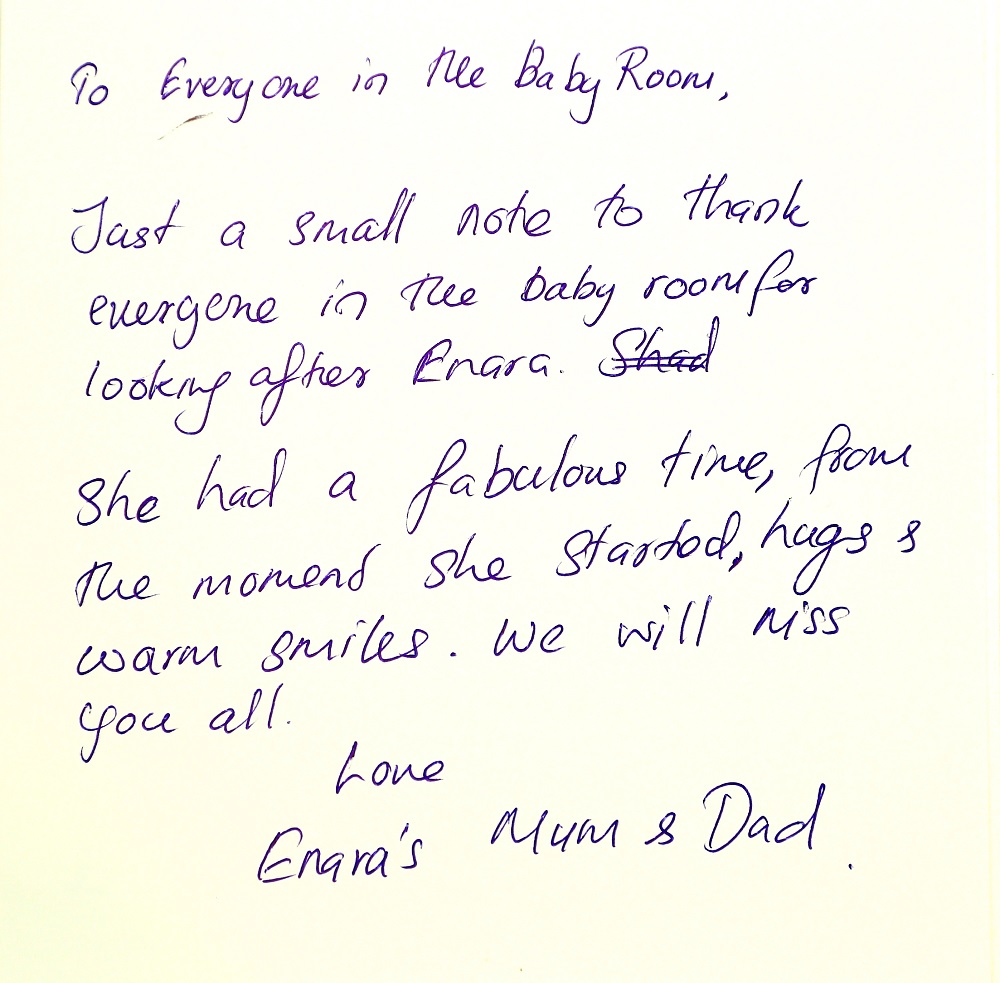 To Everyone in the Baby Room,
Just a small note to thank
everyone in the baby room for
looking after Enara. Shad
She had a fabulous time, from
the moment she started, hugs &
warm smiles. We will miss
you all.
Love
Enara's Mum & Dad.